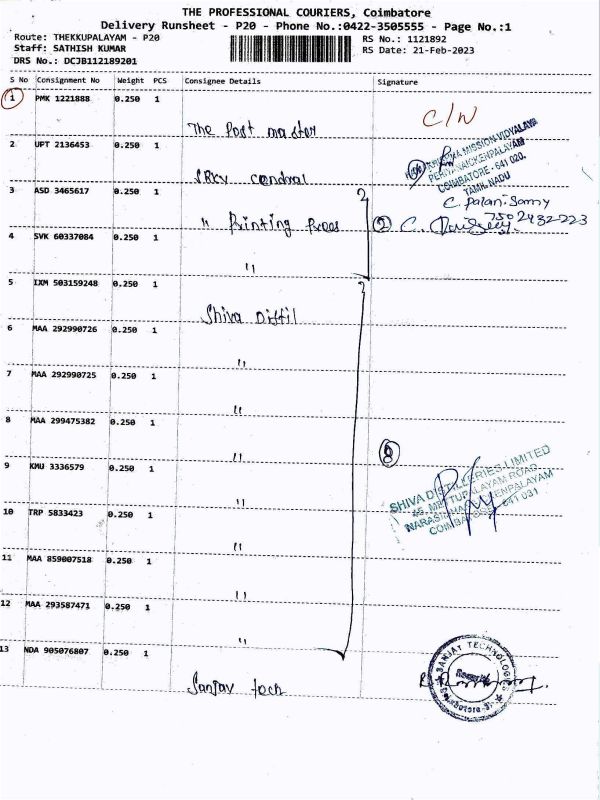 THE PROFESSIONAL COURIERS, Coimbatore
Delivery Runsheet - P20 - Phone No.:0422-3505555 - Page No.:1
Route: THEKKUPALAYAM - P20
RS No.: 1121892
Staff: SATHISH KUMAR
RS Date: 21-Feb-2023
DRS No.: DCJB112189201
S No Consignment No Weight PCS Consignee Details Signature
1 PMK 1221888 0.250 1
The Post master
C/W
2 UPT 2136453 0.250 1
MISSION VIDYALAYA
PERIYANAICKENPALAYAM
COIMBATORE - 641 020.
TAMIL NADU
SRKV
3 ASD 3465617 0.250 1
C. Palani Samy
7502432223
" Printing Press
2 C.
4 SVK 60337084 0.250 1
"
5 IXM 503159248 0.250 1
Shiva Distil
6 MAA 292990726 0.250 1
"
7 MAA 292990725 0.250 1
"
8 MAA 299475382 0.250 1
"
8
SHIVA DISTILLERIES LIMITED
METTUPALAYAM ROAD
9 KMU 3336579 0.250 1
"
10 TRP 5833423 0.250 1
"
11 MAA 859007518 0.250 1
"
12 MAA 293587471 0.250 1
"
13 NDA 905076807 0.250 1
Sanjay tech
SANJAY TECHNOLOGIES